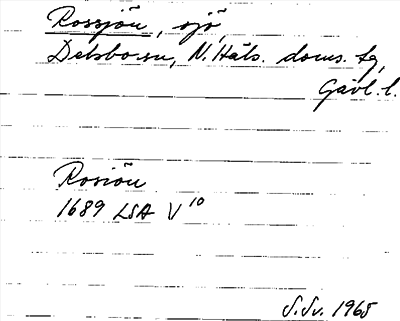 Rossjön, sjö,
Delsbo sn, N. Häls. doms. tg,
Gävl. l.
Rosiön
1689 LSA V 10
S.Sv. 1965